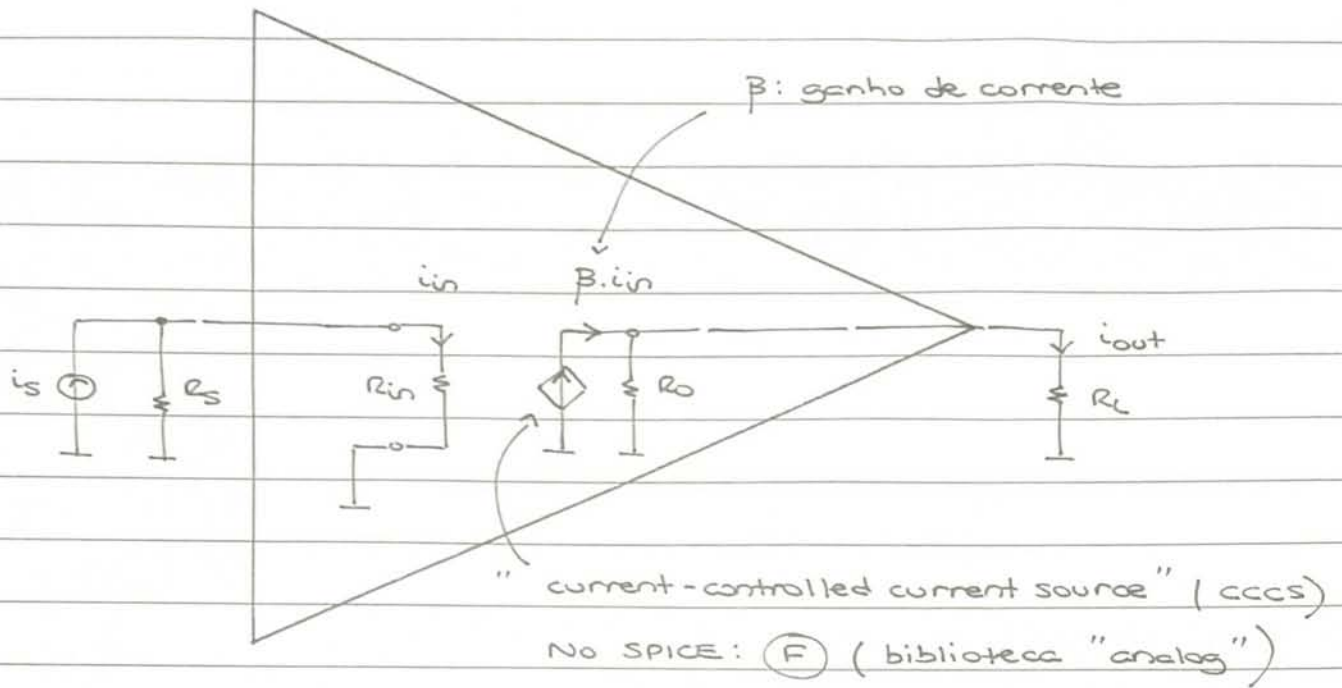 β: ganho de corrente
iin
β.iin
iout
is
Rs
Rin
Ro
RL
"current-controlled current source" (cccs)
NO SPICE: F (biblioteca "analog")